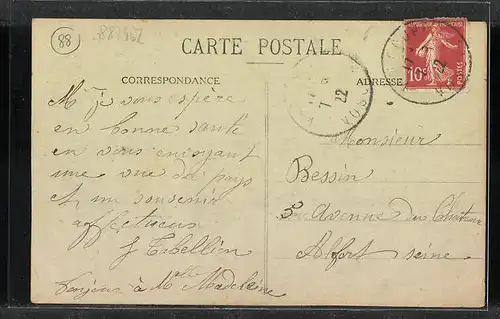 88
CARTE POSTALE
CORRESPONDANCE
ADRESSE
10c
POSTES
VOSGES
7
22
M je vous espère
en bonne santé
en vous envoyant
une vue du pays
et un souvenir
affectueux
Monsieur
Bessin
Avenue du Château
Alfort Seine
à Mlle Madeleine